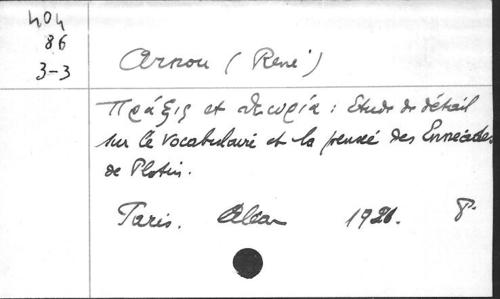 404
86
3-3
Arnou (René)
Πρᾶξις et θεωρία : Etude de détail
sur le vocabulaire et la pensée des Ennéades
de Plotin.
Paris. Alcan 1921. 8º